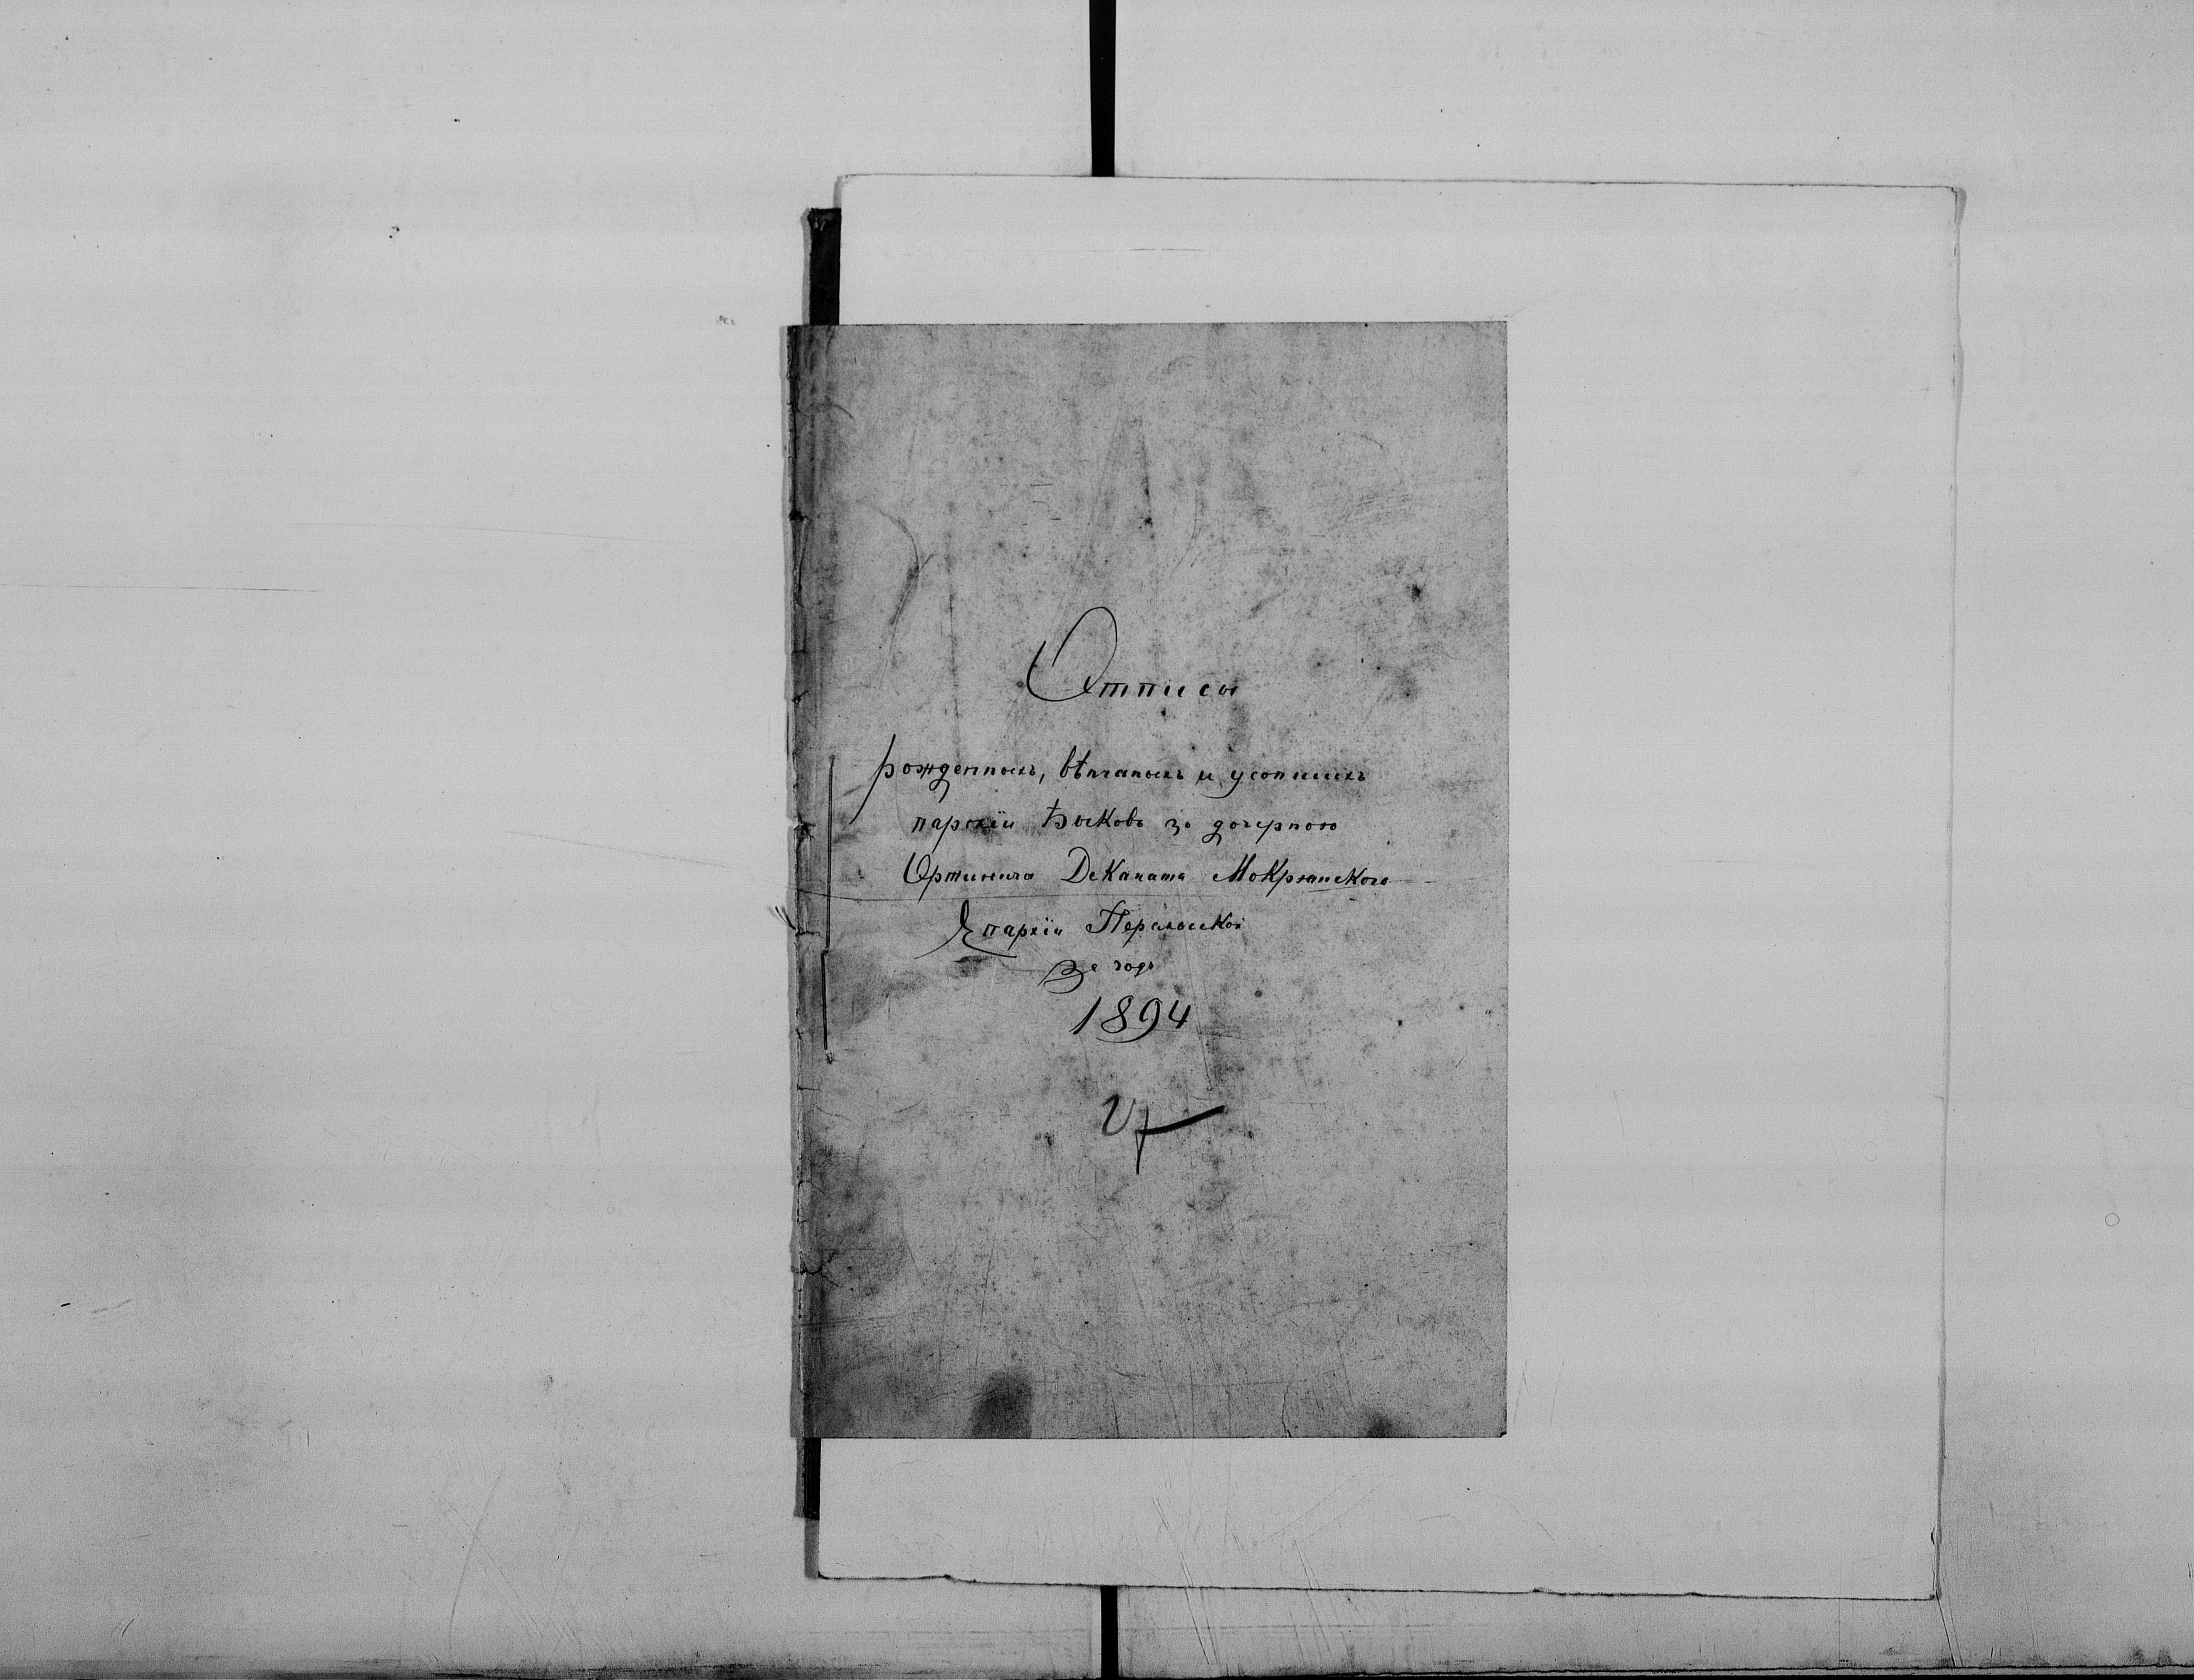 Отписы
рожденныхъ, вѣнчаныхъ и усопшихъ
парохіи Быковъ зъ дочерною
Ортиничѣ Деканата Мокрянского
Епархіи Перемыской
За годъ
1894